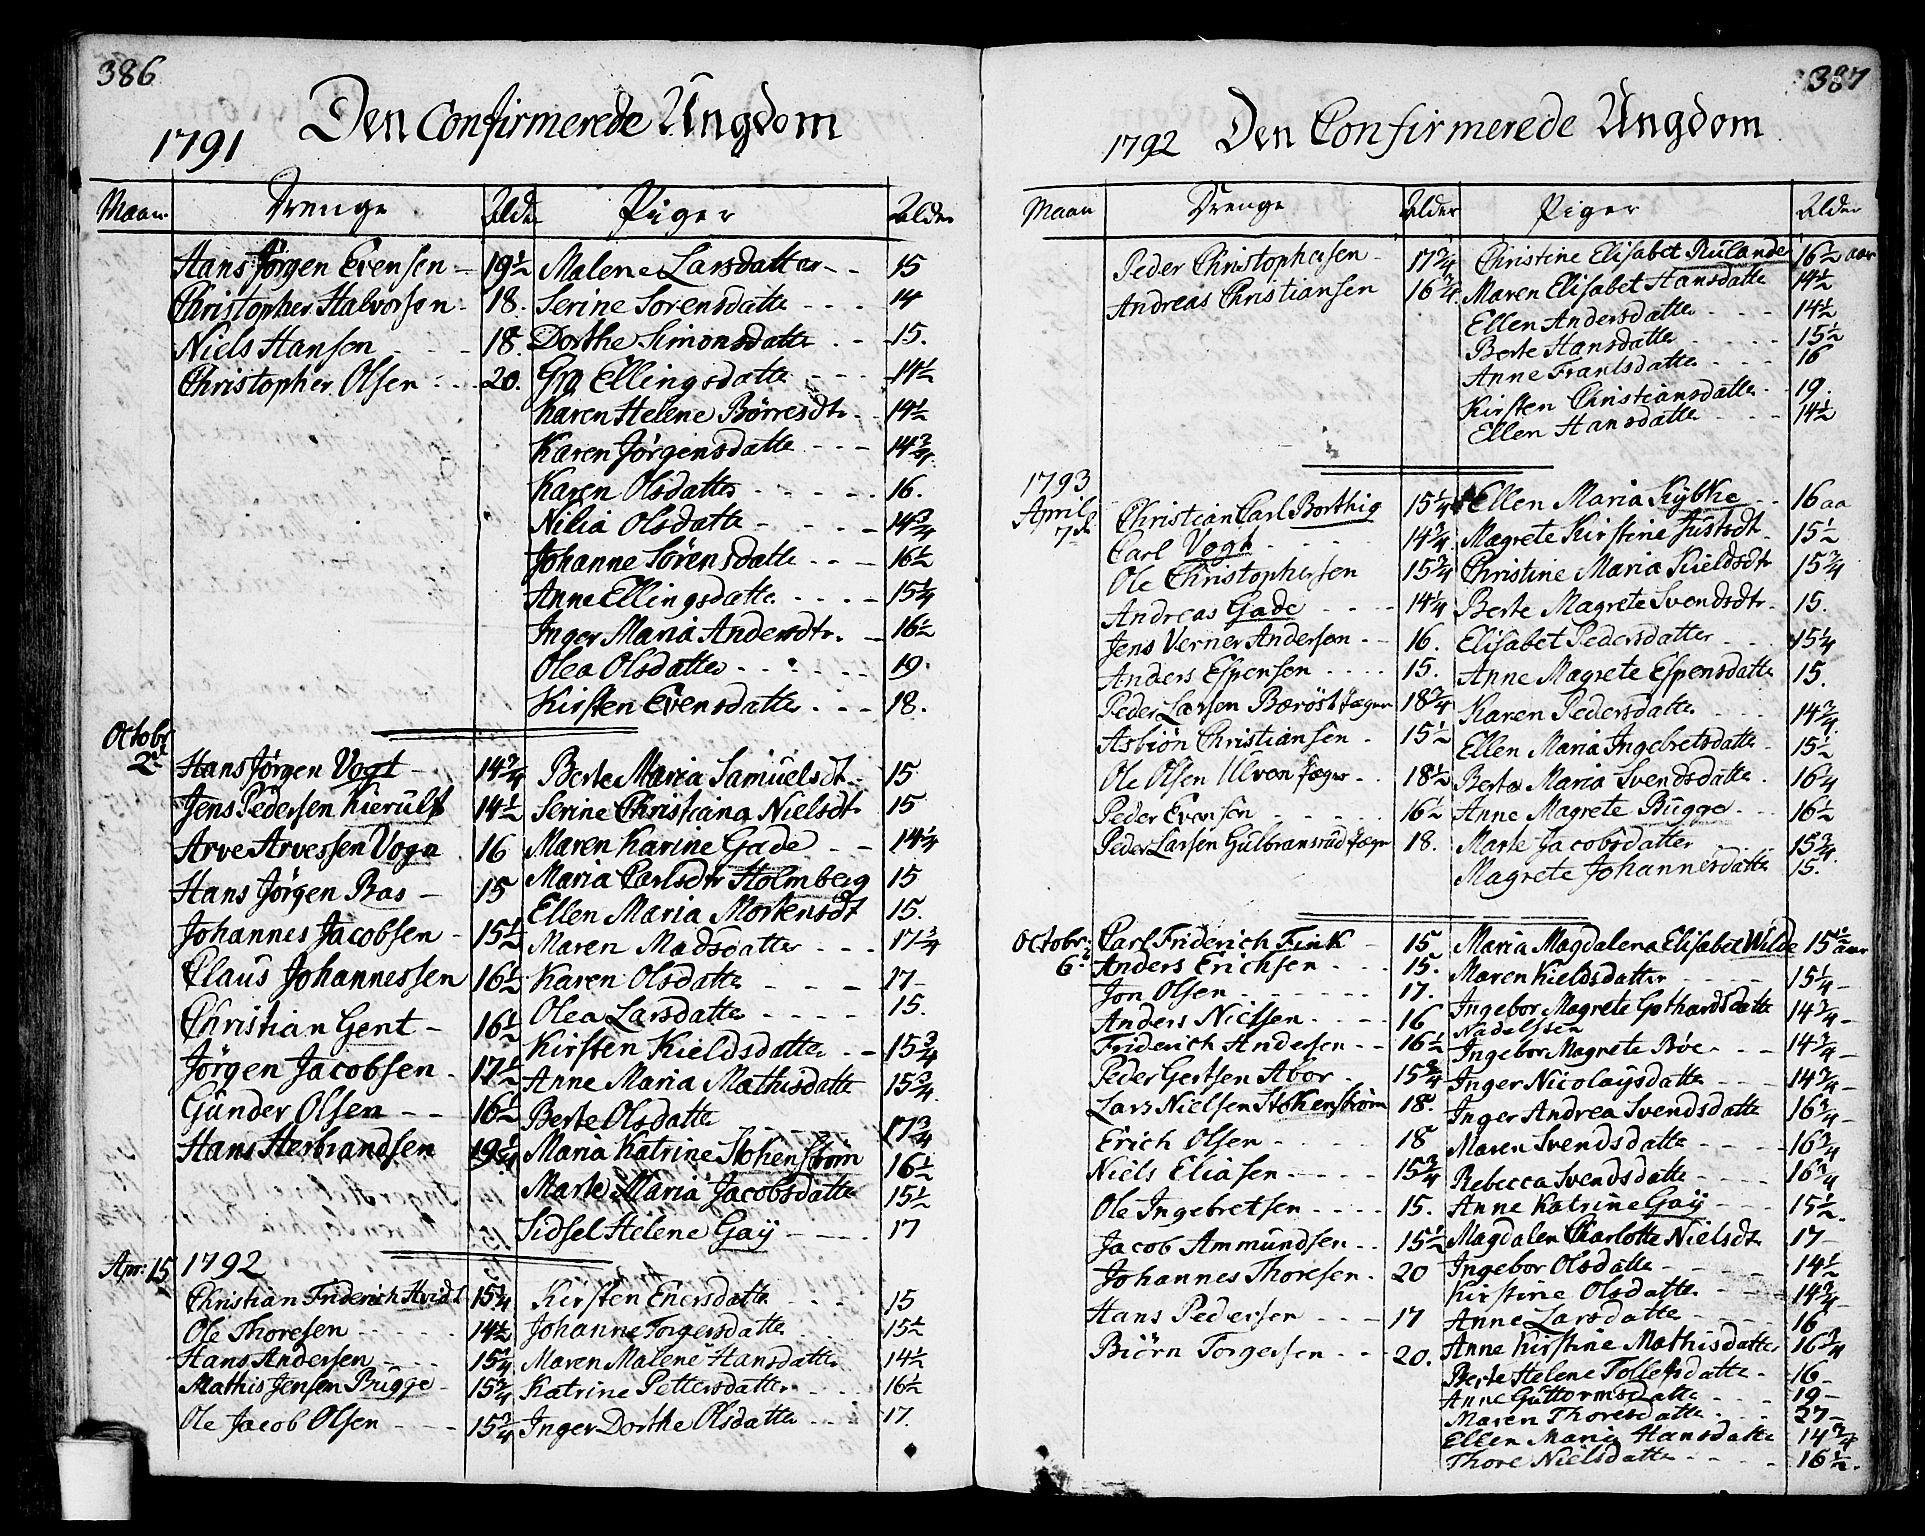 386
Den Confirmerede Ungdom
1791
Maan. Drenge Alder Piger Alder
Hans Jörgen Evensen - 19½ Malene Larsdatter - - 15
Christopher Halvorsen - 18. Serine Sorensdatte - - - 14
Niels Hansen - - - 18. Dorthe Simonsdatte - - 15.
Christopher Olsen - - - 20. Gro Ellingsdatte - - - 14½
Karen Helene Börresdtr - 14½
Karen Jörgensdatte - - - 14¾
Karen Olsdatter - - - - - 16.
Nilia Olsdatte - - - - 14¾
Johanne Sörensdatte - - - 16½
Anne Ellingsdatte - - - - 15¼
Inger Maria Andersdtr. - 16½
Olea Olsdatter - - - - - 19.
Kirsten Evensdatter - - - 18.
Octobr
2d Hans Jörgen Vogt - 14¾ Berte Maria Samuelsdt - 15
Jens Pedersen Kierulf 14½ Serine Christiana Nielsdt 15
Arve Arvessen Voga 16 Maren Karine Gade - - 14¼
Hans Jörgen Bas - 15 Maria Carlsdtr Holmberg 15
Ellen Maria Mortensdt 15.
Johannes Jacobsen - 15½ Maren Madsdatter - - - 17¾
Claus Johannessen 16½ Karen Olsdatte - - - 17 -
Christian Gent - 16½ Olea Larsdatte - - - - 15.
Jörgen Jacobsen - 17½ Kirsten Kieldsdatter - - 15¾
Anne Maria Mathisdatte 15¾
Gunder Olsen - - 16½ Berte Olsdatte - - - - 17¾
Hans Herbrandsen 19¼ Maria Katrine Stokenström 16½
Marte Maria Jacobsdatte 15½
Sidsel Helene Gaÿ - - - - 17
Apr: 15 1792
Christian Friderich Hvidt 15¼ Kirsten Enersdatte - - - 15
Ole Thoresen - - - - - 14½ Johanne Torgersdatte - - - 15½
Hans Andersen - - - - 15¼ Maren Malene Hansdatte 14½
Mathis Jensen Bugge - 15¾ Katrine Pettersdatter - - - 16½
Ole Jacob Olsen - - - 15¾ Inger Dorthe Olsdatte - - - 17.
387
1792 Den Confirmerede Ungdom
Maan Drenge Alder Piger Alder
Peder Christophersen - 17¾ Christine Elisabet Rulande 16½ aar
Andreas Christiansen 16¾ Maren Elisabet Hansdatte 14½
Ellen Andersdatte - - - - 14½
Berte Hansdatte - - - - - 15½
Anne Frantsdatte - - - - 16
Kirsten Christiansdatte - - 19.
Ellen Hansdatte - - - - 14½
1793
April
7de Christian Carl Borthig 15¼ Ellen Maria Kÿbke - - 16 aa
Carl Vogt - - - - - 14¾ Magrete Kirstine Justsdt 15½
Ole Christophersen 15¾ Christine Maria Kieldsdt 15¾
Andreas Gade - - - - 14¼ Berte Magrete Svendsdtr - 15.
Jens Verner Andersen - - 16. Elisabet Pedersdatter - - - 15¼
Anders Espensen - - - - 15. Anne Magrete Espensdatte 15.
Peder Larsen Bæröst Jæger 18¾ Karen Pedersdatte - - - 14¾
Asbiön Christiansen - 15½ Ellen Maria Ingebretsdatte - 15½
Ole Olsen Ulven Jæger - - 18½ Berta Maria Svendsdatte - 16¾
Peder Evensen - - - - - 16½ Anne Magrete Bugge - - - 16½
Peder Larsen Gulbransrud Jæger 18. Marte Jacobsdatter - - - 15¾
Magrete Johannesdatte 15.
Octobr:
6te Carl Friderich Fink - 15. Maria Magdalena Elisabet Wilde 15½ aar
Anders Erichsen - - - 15. Maren Kieldsdatter - - - - 15¼ -
Jon Olsen - - - - - - 17. Ingebor Magrete Gothardsdatte 14¾ -
Nadelssen
Anders Nielsen - - - - 16 Ingebor Magrete Böe - - - 14¾ -
Friderich Andersen - - 16½ Inger Nicolaysdatte - - - - 14¾ -
Peder Gertsen Abor - - 15¾ Inger Andrea Svendsdatte 16¾ -
Lars Nielsen Stokenström 18. Maren Svendsdatte - - - 16¾
Erich Olsen - - - - - 18 Rebecca Svendsdatte - - - - 16¼
Niels Eliasen - - - - - 15¾ Anne Katrine Gaÿ - - - 15½.
Ole Ingebretsen - - - - 15. Magdalen Charlotte Nielsdt 17 -
Jacob Ammundsen - - 15½ Ingebor Olsdatte - - - - - 14½
Johannes Thoresen - 20 Kirstine Olsdatte - - - 14¾
Hans Pedersen - - - 17 Anne Larsdatte - - - - 16
Biörn Torgersen - - - 20. Anne Kirstine Mathisdatter 16¾
Berte Helene Tollefsdatte - 16 -
Anne Guttormsdatte - - - 19 -
Maren Thoresdatte - - - 27 -
Ellen Maria Hansdatte 14¾
Thore Nielsdatte - - - - - 16½.